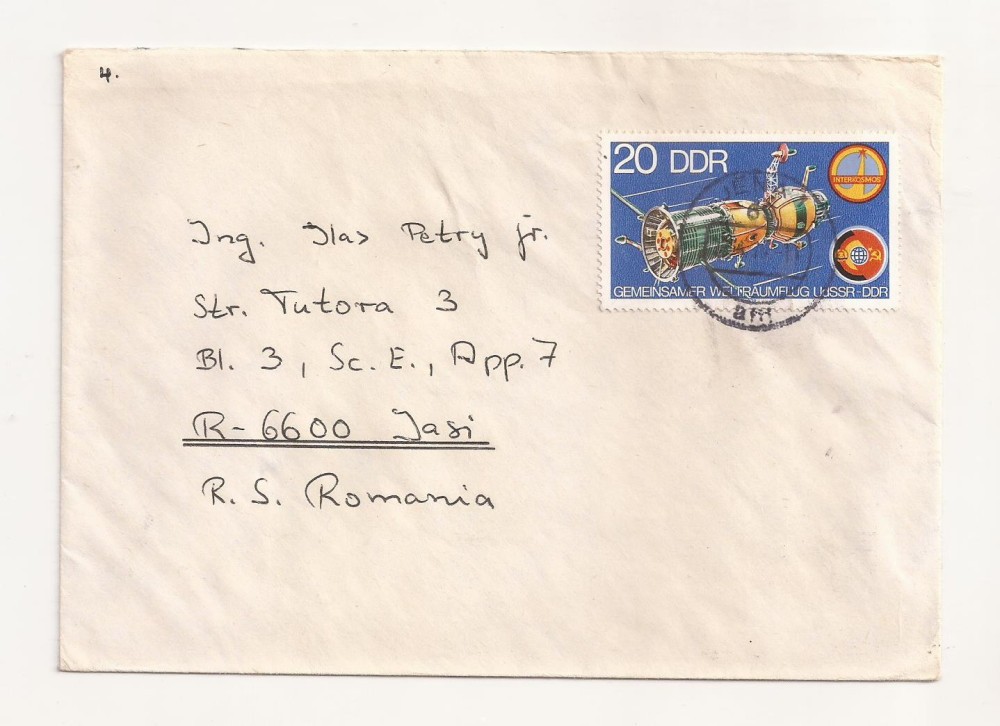 4.
20 DDR
INTERKOSMOS
GEMEINSAMER WELTRAUMFLUG UdSSR-DDR
Ing. Ilas Petry jr.
Str. Tutora 3
Bl. 3, Sc. E., App. 7
R-6600 Jasi
R. S. Romania